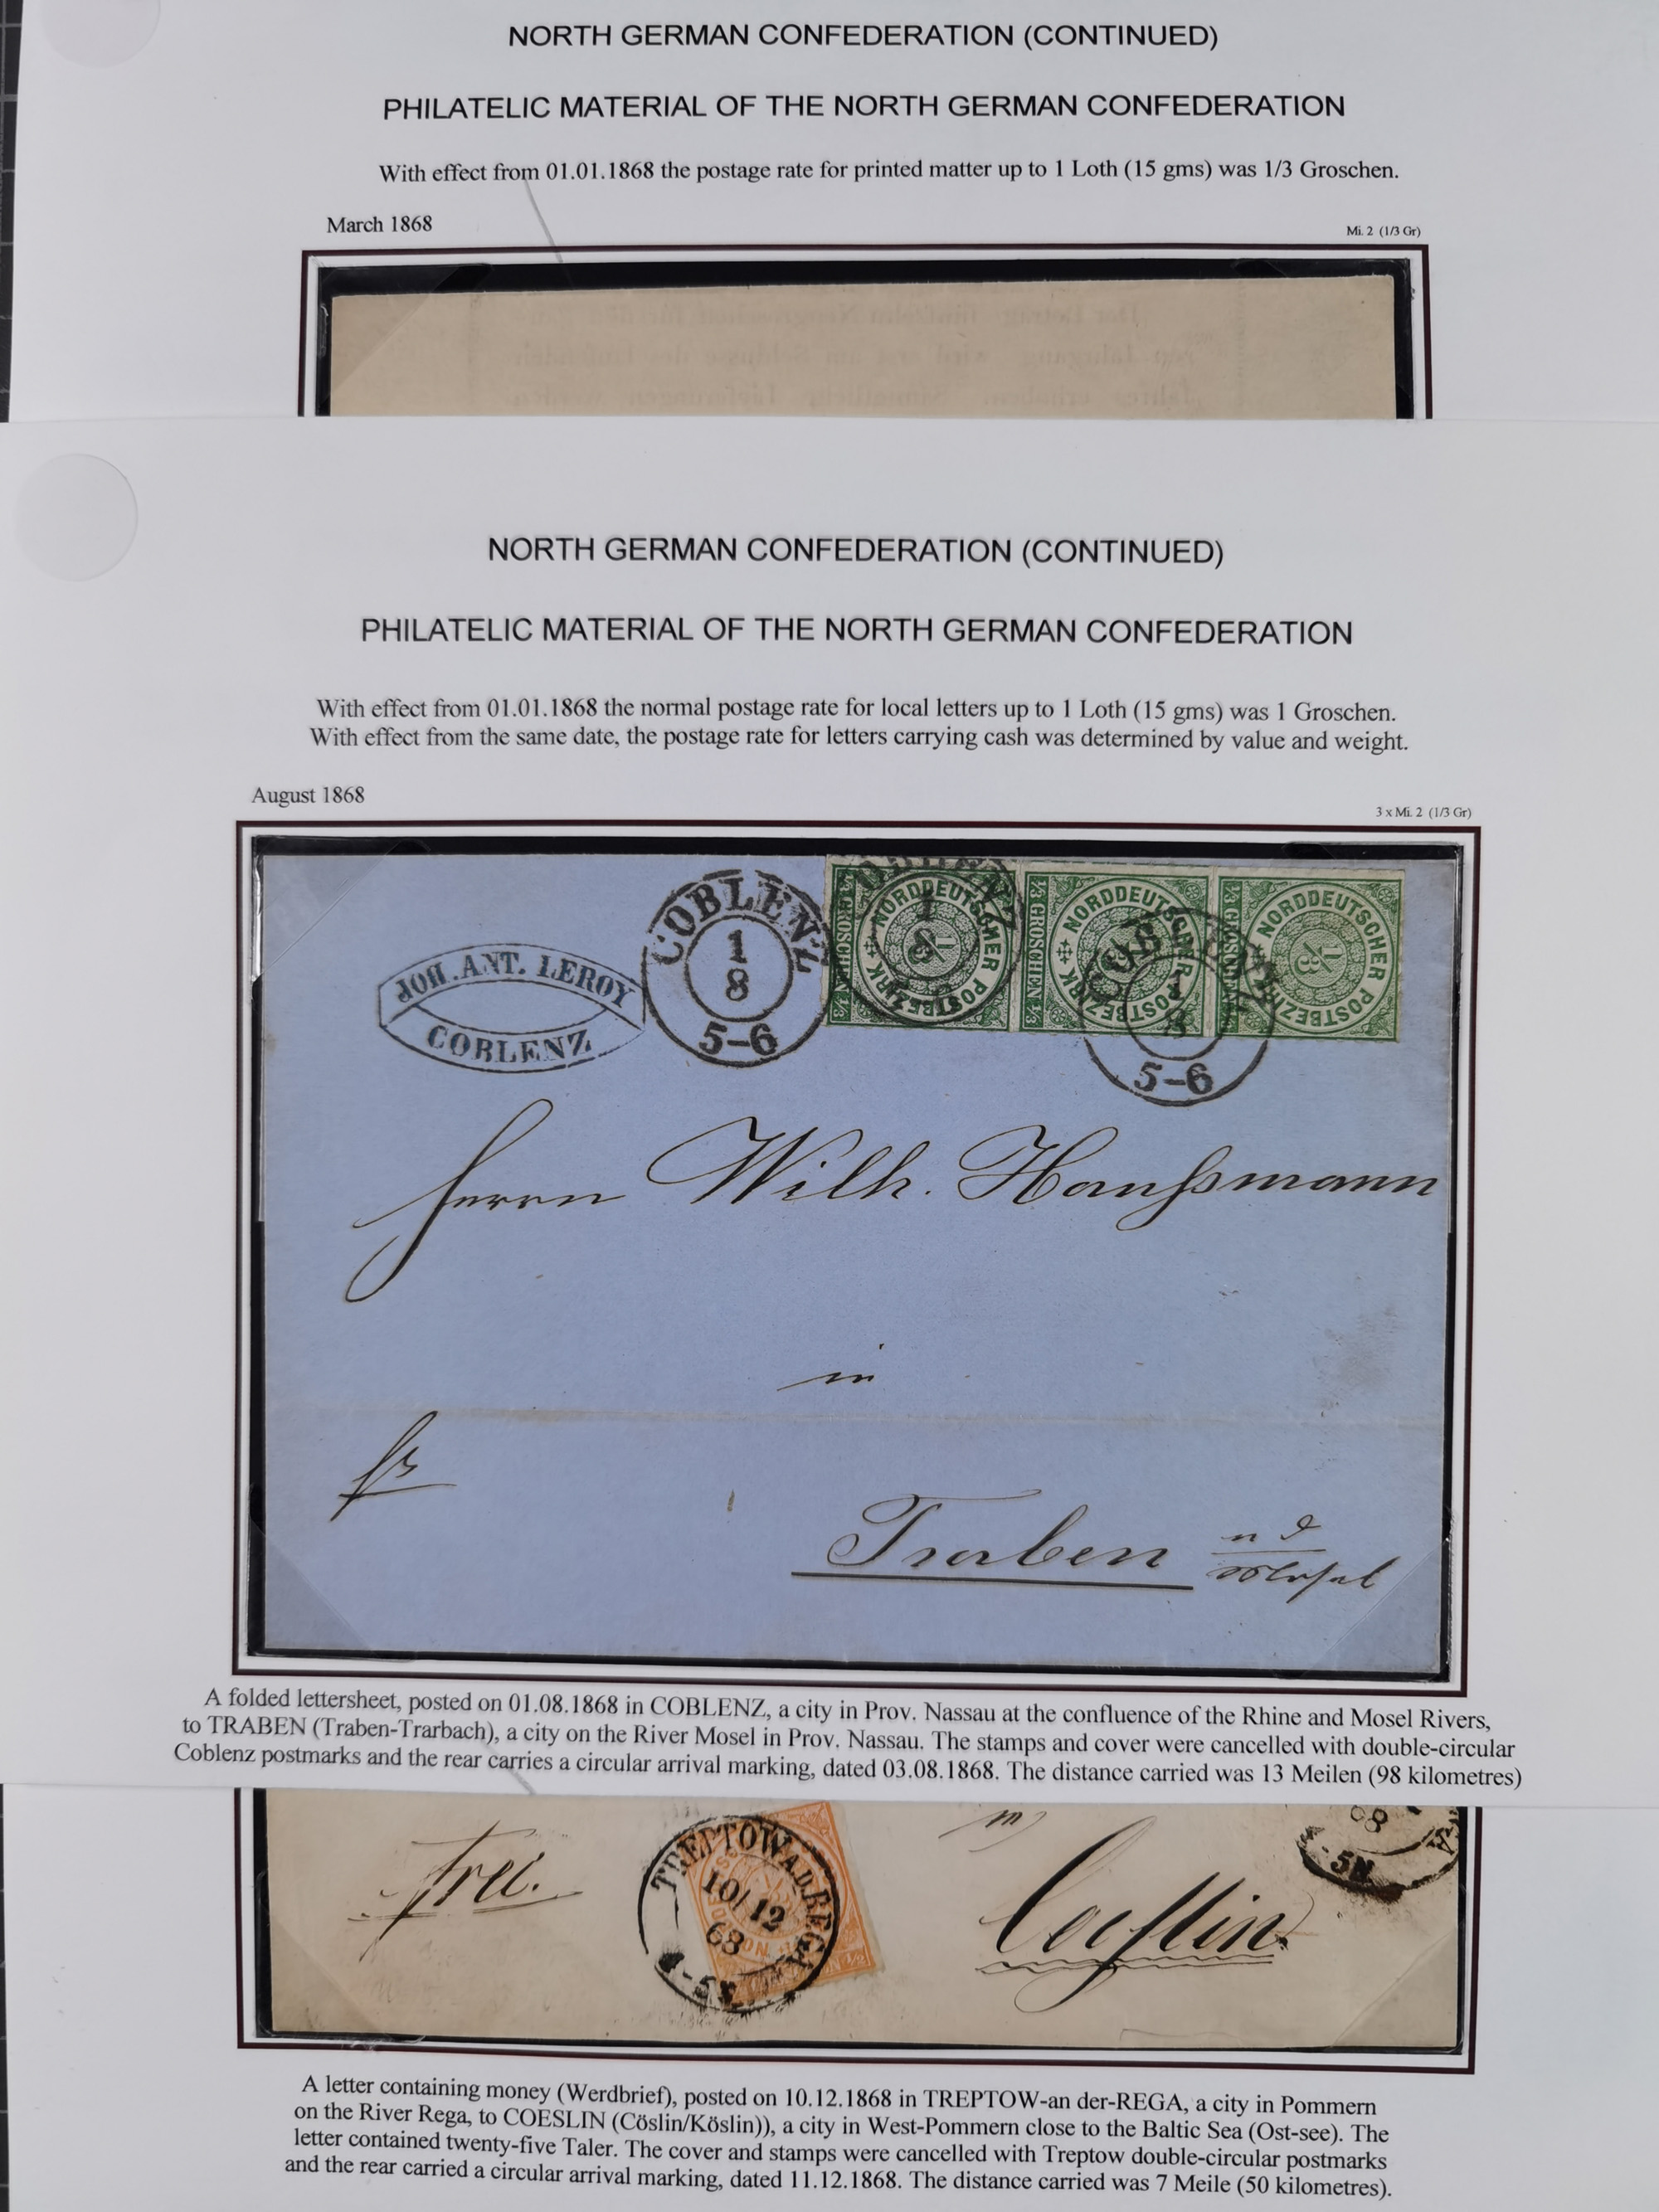 NORTH GERMAN CONFEDERATION (CONTINUED)
PHILATELIC MATERIAL OF THE NORTH GERMAN CONFEDERATION
With effect from 01.01.1868 the postage rate for printed matter up to 1 Loth (15 gms) was 1/3 Groschen.
March 1868
Mi. 2 (1/3 Gr)
NORTH GERMAN CONFEDERATION (CONTINUED)
PHILATELIC MATERIAL OF THE NORTH GERMAN CONFEDERATION
With effect from 01.01.1868 the normal postage rate for local letters up to 1 Loth (15 gms) was 1 Groschen.
With effect from the same date, the postage rate for letters carrying cash was determined by value and weight.
August 1868
3 x Mi. 2 (1/3 Gr)
JOH. ANT. LEROY
COBLENZ
COBLENZ
1
8
5-6
NORDDEUTSCHER POSTBEZIRK
1/3 GROSCHEN 1/3
NORDDEUTSCHER POSTBEZIRK
1/3 GROSCHEN 1/3
NORDDEUTSCHER POSTBEZIRK
1/3
COBLENZ
1
8
5-6
Herrn Wilh. Haußmann
in
fr
Traben
A folded lettersheet, posted on 01.08.1868 in COBLENZ, a city in Prov. Nassau at the confluence of the Rhine and Mosel Rivers,
to TRABEN (Traben-Trarbach), a city on the River Mosel in Prov. Nassau. The stamps and cover were cancelled with double-circular
Coblenz postmarks and the rear carries a circular arrival marking, dated 03.08.1868. The distance carried was 13 Meilen (98 kilometres)
frei.
TREPTOW A.D. REGA
10/12
68
Coeslin
68
A letter containing money (Werdbrief), posted on 10.12.1868 in TREPTOW-an der-REGA, a city in Pommern
on the River Rega, to COESLIN (Cöslin/Köslin)), a city in West-Pommern close to the Baltic Sea (Ost-see). The
letter contained twenty-five Taler. The cover and stamps were cancelled with Treptow double-circular postmarks
and the rear carried a circular arrival marking, dated 11.12.1868. The distance carried was 7 Meile (50 kilometres).